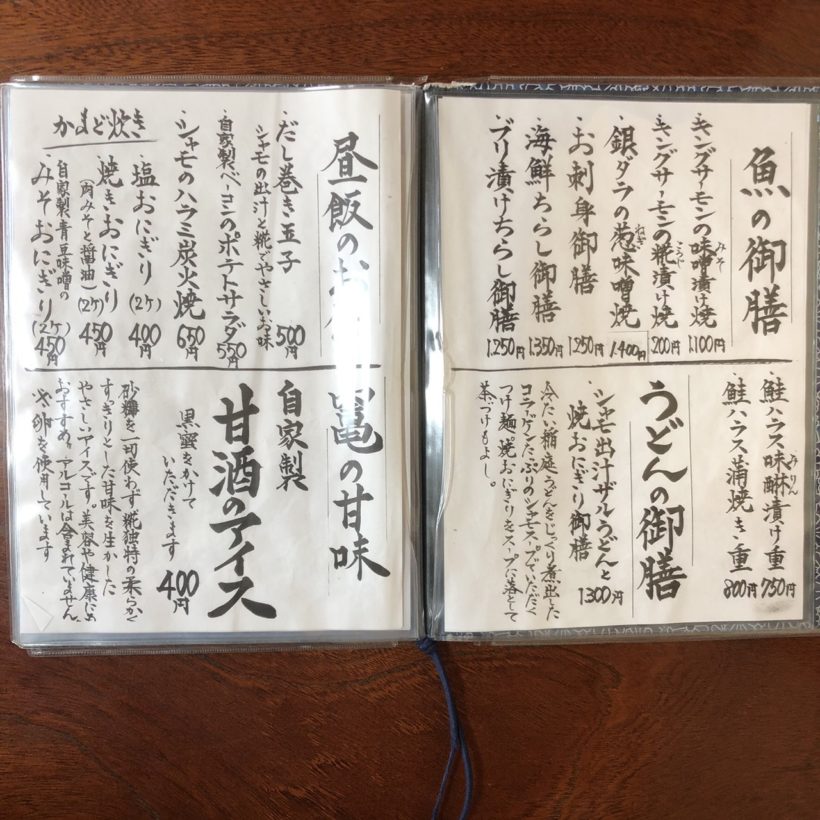 魚の御膳
・キングサーモンの味噌漬け焼 1,100円
みそ
・キングサーモンの糀漬け焼 1,200円
こうじ
・銀ダラの葱味噌焼 1,400円
ねぎ
・お刺身御膳 1,250円
・海鮮ちらし御膳 1,350円
・ブリ漬けちらし御膳 1,250円
・鮭ハラス味醂漬け重 750円
みりん
・鮭ハラス蒲焼き重 800円
うどんの御膳
・シャモ出汁ザルうどんと
焼おにぎり御膳 1,300円
冷たい稲庭うどんをじっくり煮出した
コラーゲンたっぷりのシャモスープでいただく
つけ麺。焼おにぎりをスープに落として
茶づけもよし。
昼飯のお
・だし巻き玉子 500円
シャモの出汁と糀でやさしいお味
・自家製ベーコンのポテトサラダ 550円
・シャモのハラミ炭火焼 650円
かまど炊き
・塩おにぎり(2ケ) 400円
・焼きおにぎり(2ケ) 450円
(肉みそと醤油)
・自家製青豆味噌の
みそおにぎり(2ケ) 450円
竈の甘味
自家製
甘酒のアイス
黒蜜をかけて
いただきます 400円
砂糖を一切使わず、糀独特の柔らかく
すっきりとした甘味を生かした
やさしいアイスです。美容や健康にも
おすすめ。アルコールは含まれていません。
※卵を使用しています